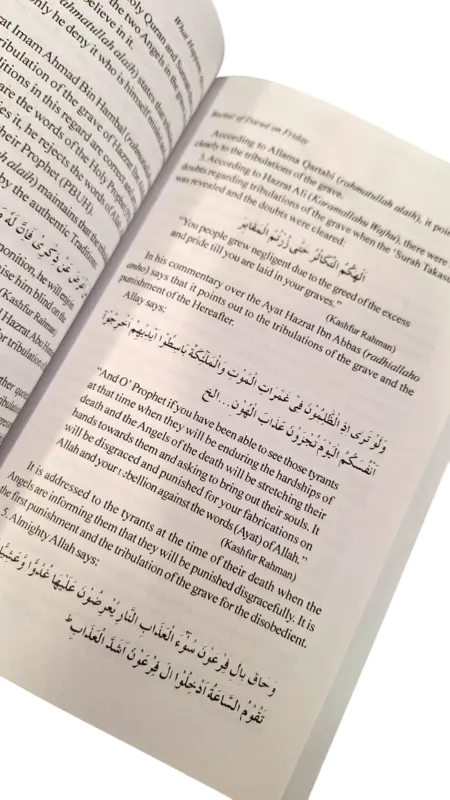 What Happens
Holy Quran and Sunnah
the two Angels in the grave
ahmatullah alaih) states the
only he deny it who is himself misled
believe in it.
rat Imam Ahmad Bin Hambal (rahma
ribulation of the grave of Hazrat
ditions in this regard are correct and
are the words of the Holy Prophet
ies it, he rejects the words of Allah
heir Prophet (PBUH).
h alaih) maintains that the
by the authentic Traditions
عَنْ ذِكْرِىْ فَاِنَّ لَهٗ
position, he will enjoy
ise him blind on the
(Kashfur Rahman)
l Hazrat Abu
or tribulation
rther quotes
tribulation
Burial of Darud on Friday
According to Allama Qurtabi (rahmatullah alaih), it points
clearly to the tribulations of the grave.
3. According to Hazrat Ali (Karamallahu Wajhu), there were
doubts regarding tribulations of the grave when the 'Surah Takasur
was revealed and the doubts were cleared:
اَلْهٰكُمُ التَّكَاثُرُ حَتّٰى زُرْتُمُ الْمَقَابِرَ
"You people grew negligent due to the greed of the excess
and pride till you are laid in your graves."
(Kashfur Rahman)
In his commentary over the Ayat Hazrat Ibn Abbas (radhiallaho
anho) says that it points out to the tribulations of the grave and the
punishment of the Hereafter.
Allay says:
وَلَوْ تَرٰى اِذِ الظّٰلِمُوْنَ فِىْ غَمَرَاتِ الْمَوْتِ وَالْمَلٰٓئِكَةُ بَاسِطُوْا اَيْدِيْهِمْ اَخْرِجُوْا
اَنْفُسَكُمُ اَلْيَوْمَ تُجْزَوْنَ عَذَابَ الْهُوْنِ ... الخ
"And O' Prophet if you have been able to see those tyrants
at that time when they will be enduring the hardships of
death and the Angels of the death will be stretching their
hands towards them and asking to bring out their souls. It
will be disgraced and punished for your fabrications on
Allah and your rebellion against the words (Ayat) of Allah."
(Kashfur Rahman)
It is addressed to the tyrants at the time of their death when the
Angels are informing them that they will be punished disgracefully. It is
the first punishment and the tribulation of the grave for the disobedient.
5. Almighty Allah says:
وَحَاقَ بِاٰلِ فِرْعَوْنَ سُوْٓءُ الْعَذَابِ النَّارُ يُعْرَضُوْنَ عَلَيْهَا غُدُوًّا وَّعَشِيًّا
تَقُوْمُ السَّاعَةُ اَدْخِلُوْا اٰلَ فِرْعَوْنَ اَشَدَّ الْعَذَابِ ط